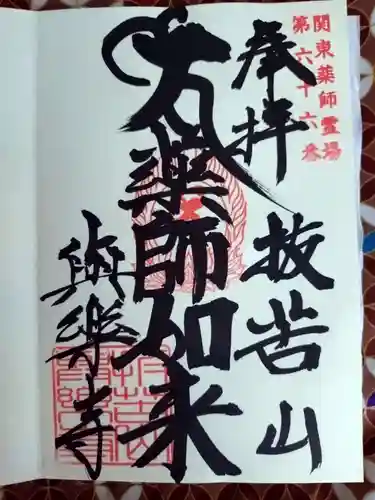 関東薬師霊場
第六十六番
奉拝
抜苦山
薬師如来
與樂寺